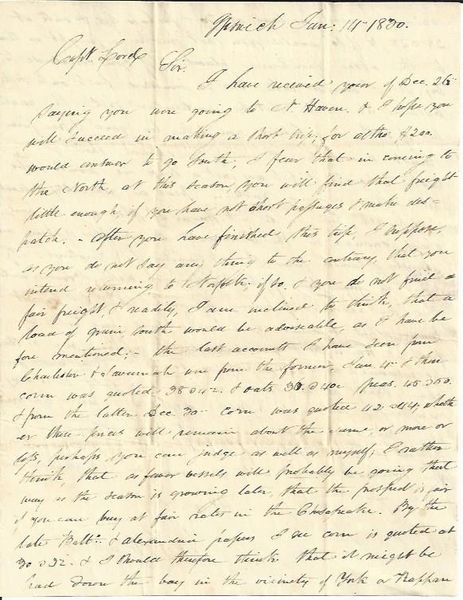 Ipswich Jan: 14 1830.
Capt. Lord
Sir.
I have received your of Dec. 26
saying you were going to N Haven, & I hope you
will succeed in making a short trip, for altho $200
would answer to go South, I fear that in coming to
the North, at this season you will find that freight
little enough, if you have not short passages & make des-
patch. - After you have finished this trip, I suppose,
as you do not say any thing to the contrary that you
intend returning to Norfolk; if so, & you do not find a
fair freight & readily, I am inclined to think, that a
load of grain south would be advisable, as I have be
fore mentioned; - the last accounts I have seen from
Charleston & Savannah were from the former, Jan 4. & then
corn was quoted 38 a 42. & oats 30 a 40c peas. 45 a 50.
& from the latter Dec 30. corn was quoted 42 a 44, wheth
er these prices will remain about the same, or more or
less, perhaps you can judge as well as myself; I rather
think that as fewer vessels will probably be going that
way as the season is growing later, that the prospect is fair
if you can buy at fair rates in the Chesapeake. By the
late Balt. & Alexandria papers I see corn is quoted at
30 a 32. & I should therefore think that it might be
had down the bay in the vicinity of York or Rappan